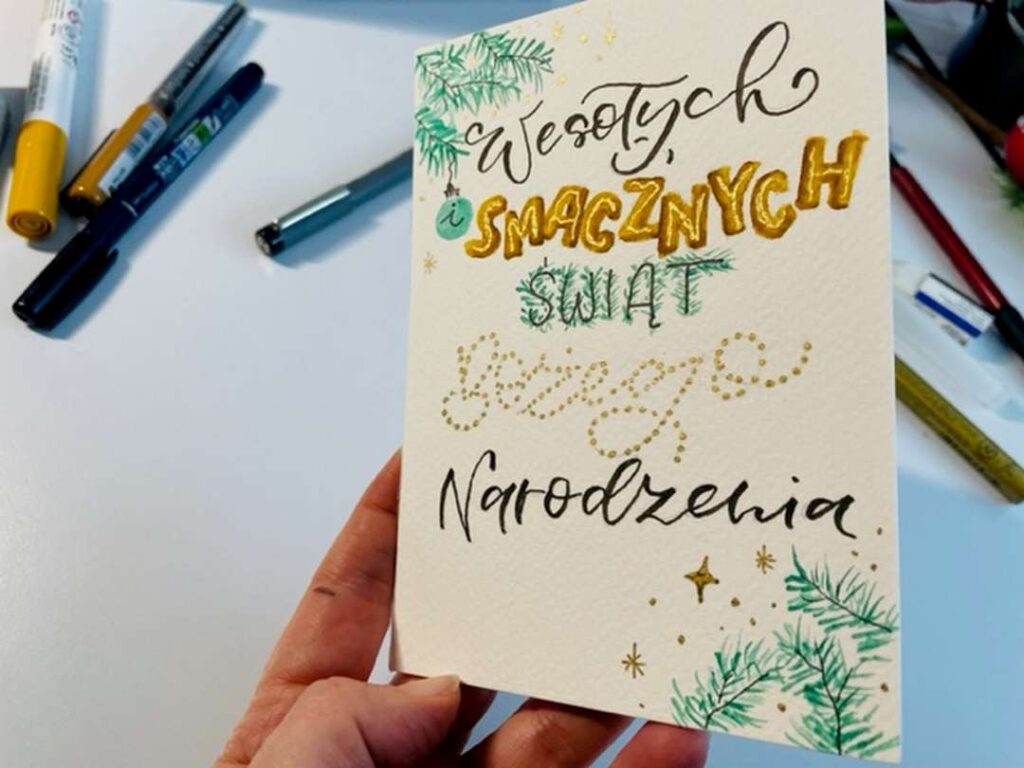 Wesołych
i SMACZNYCH
ŚWIĄT
Bożego
Narodzenia